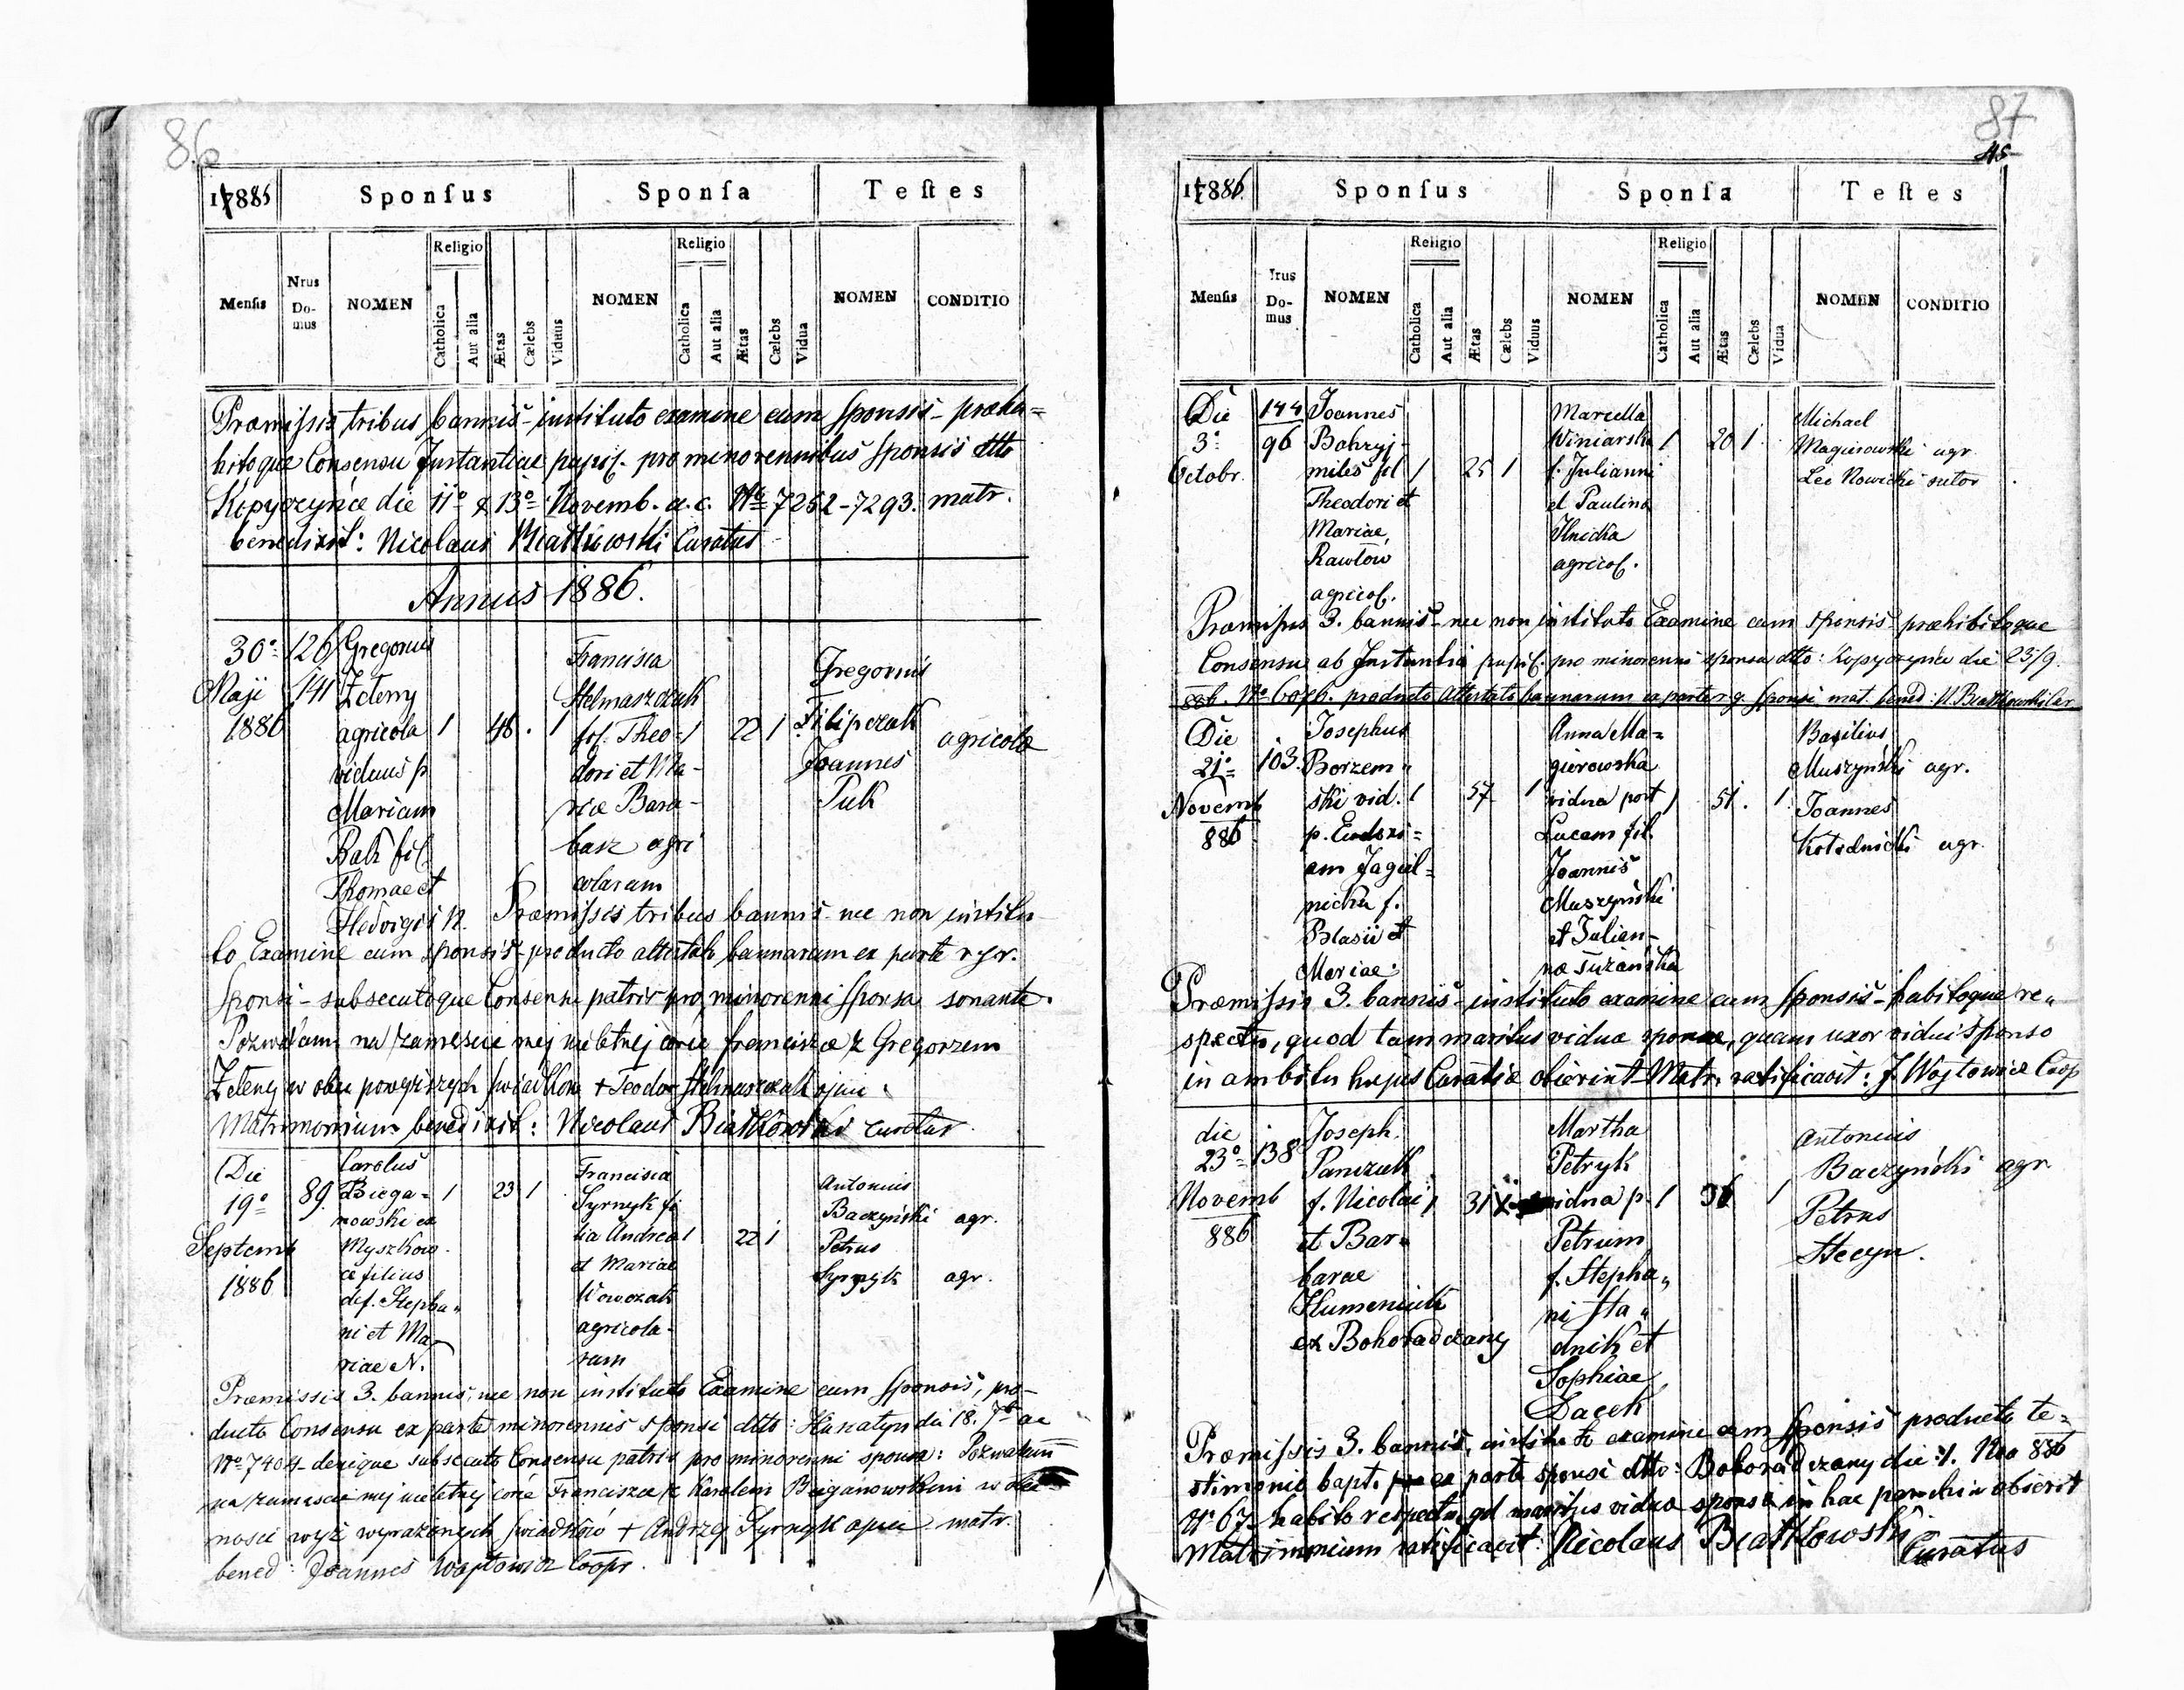 86
17885
Sponſus
Sponſa
Teſtes
Menſis
Nrus Do-mus
NOMEN
Religio
Catholica
Aut alia
Ætas
Cælebs
Viduus
NOMEN
Religio
Catholica
Aut alia
Ætas
Cælebs
Vidua
NOMEN
CONDITIO
Præmissis tribus bannis - instituto examine cum sponsis - præha=
bitoque Consensu Instantiae pupil. pro minorennibus sponsis dtto
Kopyczyńce die 11º & 13º Novemb. a.c. Nº 7252-7293. matr.
benedixit: Nicolaus Białkowski Curatus
Annus 1886.
30º Maji 1886
126
141
Gregorius
Zeleny
agricola
viduus p.
Mariam
Bak fil.
Thomae et
Hedvigis N.
1
48.
1
Francisca
Stelmaszczuk
fil. Theo-
dori et Ma-
riæ Bara-
basz agri
colarum
1
22
1
Gregorius
Filipczak
Joannes
Puk
agricolæ
Præmissis tribus bannis nec non institu-
to Examine cum sponsis - producto attestato bannorum ex parte r. gr.
Sponsi - subsecutoque Consensu patris pro minorenni sponsa sonante.
Pozwalam na zamęście mej nieletniej córce Franciszce z Gregorzem
Zeleny w obec powyższych świadków + Teodor Stelmaszczuk ojciec
Matrimonium benedixit: Nicolaus Białkowski curatus
Die
19º
Septemb
1886
89.
Carolus
Biega-
nowski ex
Myszkow-
ce filius
def. Stepha„
ni et Ma-
riae N.
1
23
1
Francisca
Syrnyk fi
lia Andreæ
et Mariae
Wowczak
agricola-
rum
1
22
1
Antonius
Baczyński agr.
Petrus
Syrnyk agr.
Præmissis 3. bannis, nec non instituto Examine cum sponsis, pro-
ducto Consensu ex parte minorennis sponsi dtto: Husiatyn die 18. 7b ac
Nº 7404 - denique subsecuto Consensu patris pro minorenni sponsa: Pozwalam
na zamęście mej nieletniej córce Franciszce z Karolem Bieganowskim w obec
ności wyż wyrażonych świadków + Andrzej Syrnyk ojciec matr.
bened: Joannes Wojtowicz Coopr.
87
45
17886.
Sponſus
Sponſa
Teſtes
Menſis
Nrus Do-mus
NOMEN
Religio
Catholica
Aut alia
Ætas
Cælebs
Viduus
NOMEN
Religio
Catholica
Aut alia
Ætas
Cælebs
Vidua
NOMEN
CONDITIO
Die
3º
Octobr.
144
96
Joannes
Bahryj-
miles fil
Theodori et
Mariae,
Rawlów
agricol.
1
25
1
Marcella
Winiarska
f. Julianni
et Paulina
Ilnicka
agricol.
1
20
1
Michael
Magierowski agr.
Leo Nowicki sutor
Præmissis 3. bannis - nec non instituto Examine cum sponsis - præhibitoque
Consensu ab Instantia pupil. pro minorenni sponsa dtto: Kopyczyńce die 23/9.
886. Nº producto attestato bannorum ex parte r. g. sponsi mat. bened: N. Białkowski Cur.
Die
21º
Novemb
886
103.
Josephus
Borzem„
ski vid.
p. Eudoxi=
am Jagiel=
nicka f.
Blasii et
Mariae.
1
57
1
Anna Ma=
gierowska
vidua post
Lucam fil.
Joannis
Muszyński
et Julian-
næ Tuzańska
1
51.
1
Basilius
Muszyński agr.
Joannes
Kołodnicki agr.
Præmissis 3. bannis - instituto examine cum sponsis - habitoque re„
spectu, quod tam maritus viduæ sponsæ, quam uxor vidui sponso
in ambitu hujus Curatiæ obierint - Matr. ratificavit: J. Wojtowicz Coop
die
23º
Novemb
886
138
Joseph
Panczuk
f. Nicolai
et Bar„
barae
Humeniuk
ex Bohorodczany
1
31
Martha
Petryk
vidua p.
Petrum
f. Stepha„
ni Sta„
dnik et
Sophiae
Dacek
1
36
1
Antonius
Baczyński agr.
Petrus
Stecyn.
Præmissis 3. bannis, instituto examine cum sponsis producto te=
stimonio bapt. ex parte sponsi dtto: Bohorodczany die 1. Nro 886
Nº 67 - habito respectu, qd maritus viduæ sponsæ in hac parochia obierit
Matrimonium ratificavit: Nicolaus Białkowski
Curatus